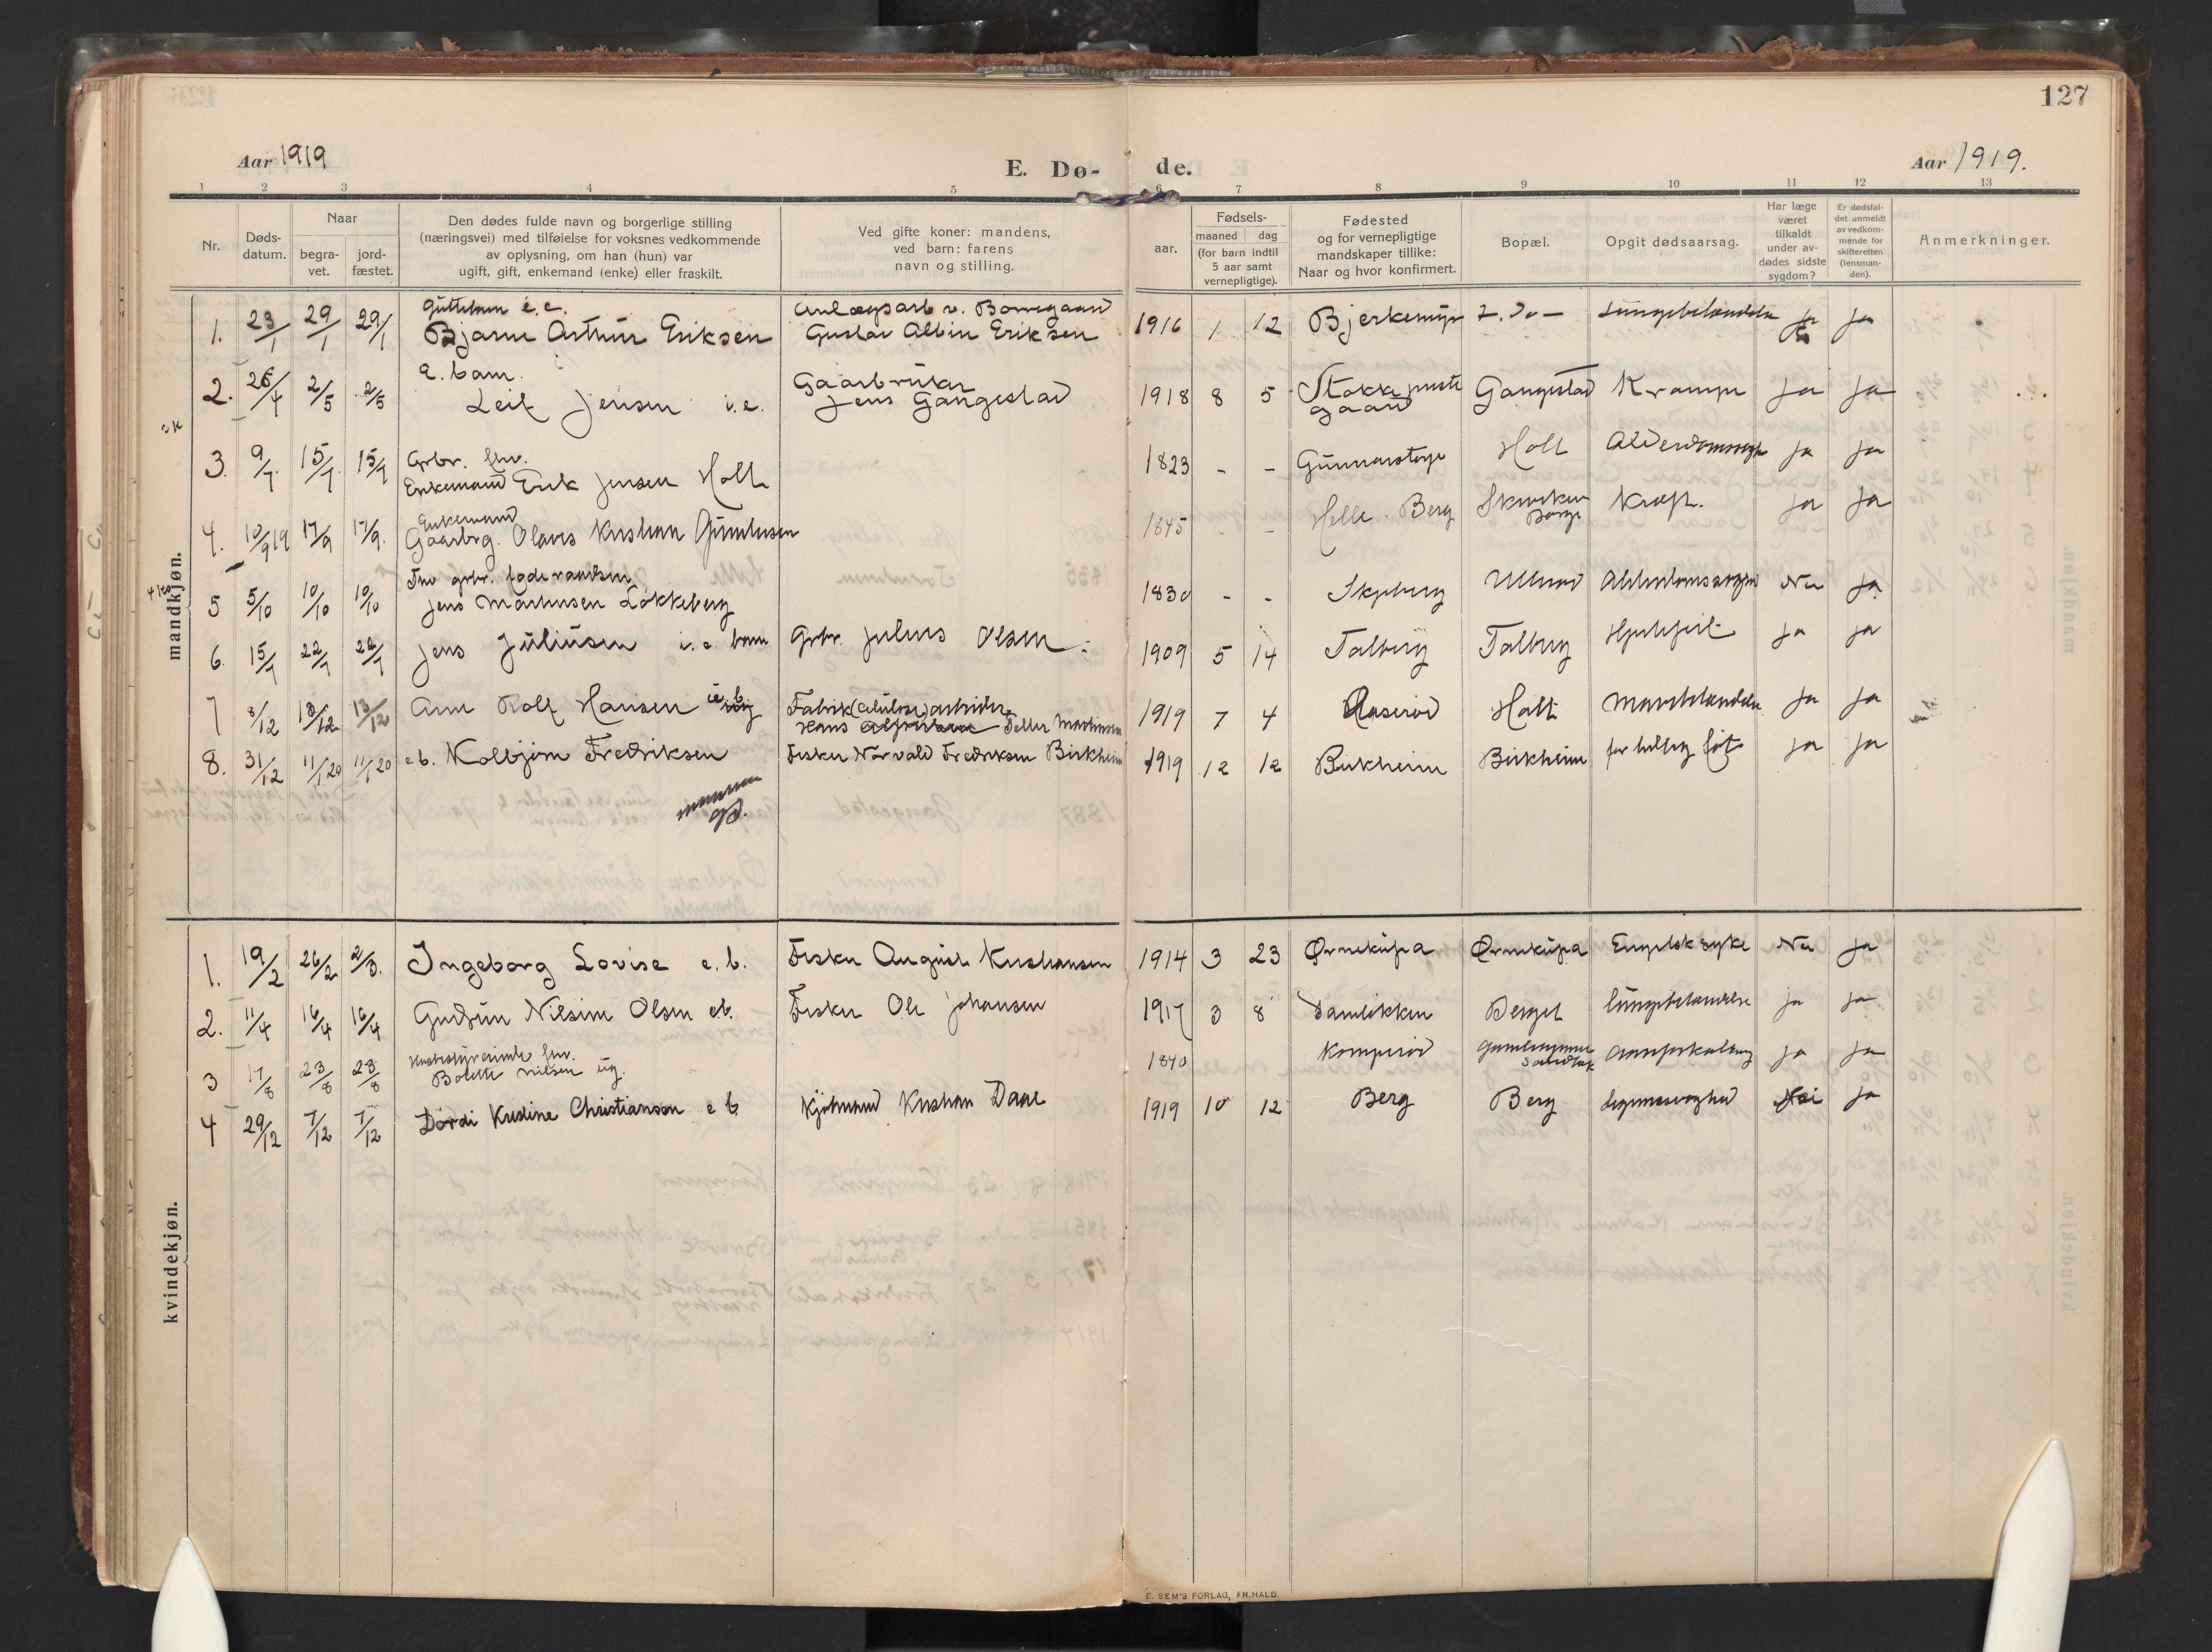 127
Aar 1919
E. Dø-
de.
Aar 1919.
1 2 3 4 5 6 7 8 9 10 11 12 13
Nr.
Døds-
datum.
Naar
begra-
vet.
jord-
fæstet.
Den dødes fulde navn og borgerlige stilling
(næringsvei) med tilføielse for voksnes vedkommende
av oplysning, om han (hun) var
ugift, gift, enkemand (enke) eller fraskilt.
Ved gifte koner: mandens,
ved barn: farens
navn og stilling.
aar.
Fødsels-
maaned dag
(for barn indtil
5 aar samt
vernepligtige).
Fødested
og for vernepligtige
mandskaper tillike:
Naar og hvor konfirmert.
Bopæl.
Opgit dødsaarsag.
Har læge
været
tilkaldt
under av-
dødes sidste
sygdom?
Er dødsfal-
det anmeldt
av vedkom-
mende for
skifteretten
(lensman-
den).
Anmerkninger.
mandkjøn.
1. 23/1 29/1 29/1 Guttebarn e.e. Bjarne Arthur Eriksen Gustav Albin Eriksen 1916 1 12 Bjerkemyr Lungebetændelse ja ja
2. 26/4 2/5 2/5 e. barn. Leif Jensen i.e. Gaardbruker Jens Gangestad 1918 8 5 Stokke prestegaard Gangestad Krampe ja ja
3. 9/7 15/7 15/7 Grbr. fhv. Enkemand Erik Jensen Holt 1823 - - Gunnarstorp Holt Alderdomssvaghet ja ja
4. 10/9 19 17/9 17/9. Enkemand Gaardbrg. Olaves Kristian 1845 - - Helle. Berg Borge Kræft. ja ja
5 5/10 10/10 10/10 Fhv grbr. føderaadsm. Jens Martinsen Løkkeberg 1830 - - Skjeberg Ullerød Nei ja
6. 15/7 22/7 22/7 Jens Juliusen i.e. barn Grbr. Julius Olsen. 1909 5 14 Talberg Talberg Hjertefeil ja ja
7 8/12 13/12 13/12 Arne Rolf Hansen Fabrik (celulose) arbeider Hans Teller Martinsen 1919 7 4 Raserød Holt ja ja
8. 31/12 11/1 20 11/1 20 e.b. Kolbjørn Fredriksen Fisker Norvald Fredriksen Birkheim 1919 12 12 Birkheim Birkheim for tidlig født ja ja
kvindekjøn.
1. 19/2 26/2 2/3. Ingeborg Lovise e. b. Fisker August Kristiansen 1914 3 23 Ørnekupa Ørnekupa Engelsk syke Nei ja
2. 11/4 16/4 16/4 Gudrun Nilsine Olsen eb. Fisker Ole Johansen 1917 3 8 Damløkken Berget lungebetændelse ja ja
3 17/8 23/8 23/8 Husbestyrerinde fhv. Bolette Nilsen ug. 1840 Komperød Aareforkalkning ja ja
4 29/12 7/12 7/12 Dordi Kristine Christiansen e b Kjøbmand Kristian Daae 1919 10 12 Berg Berg Nei ja
E. SEM'S FORLAG, FR.HALD.